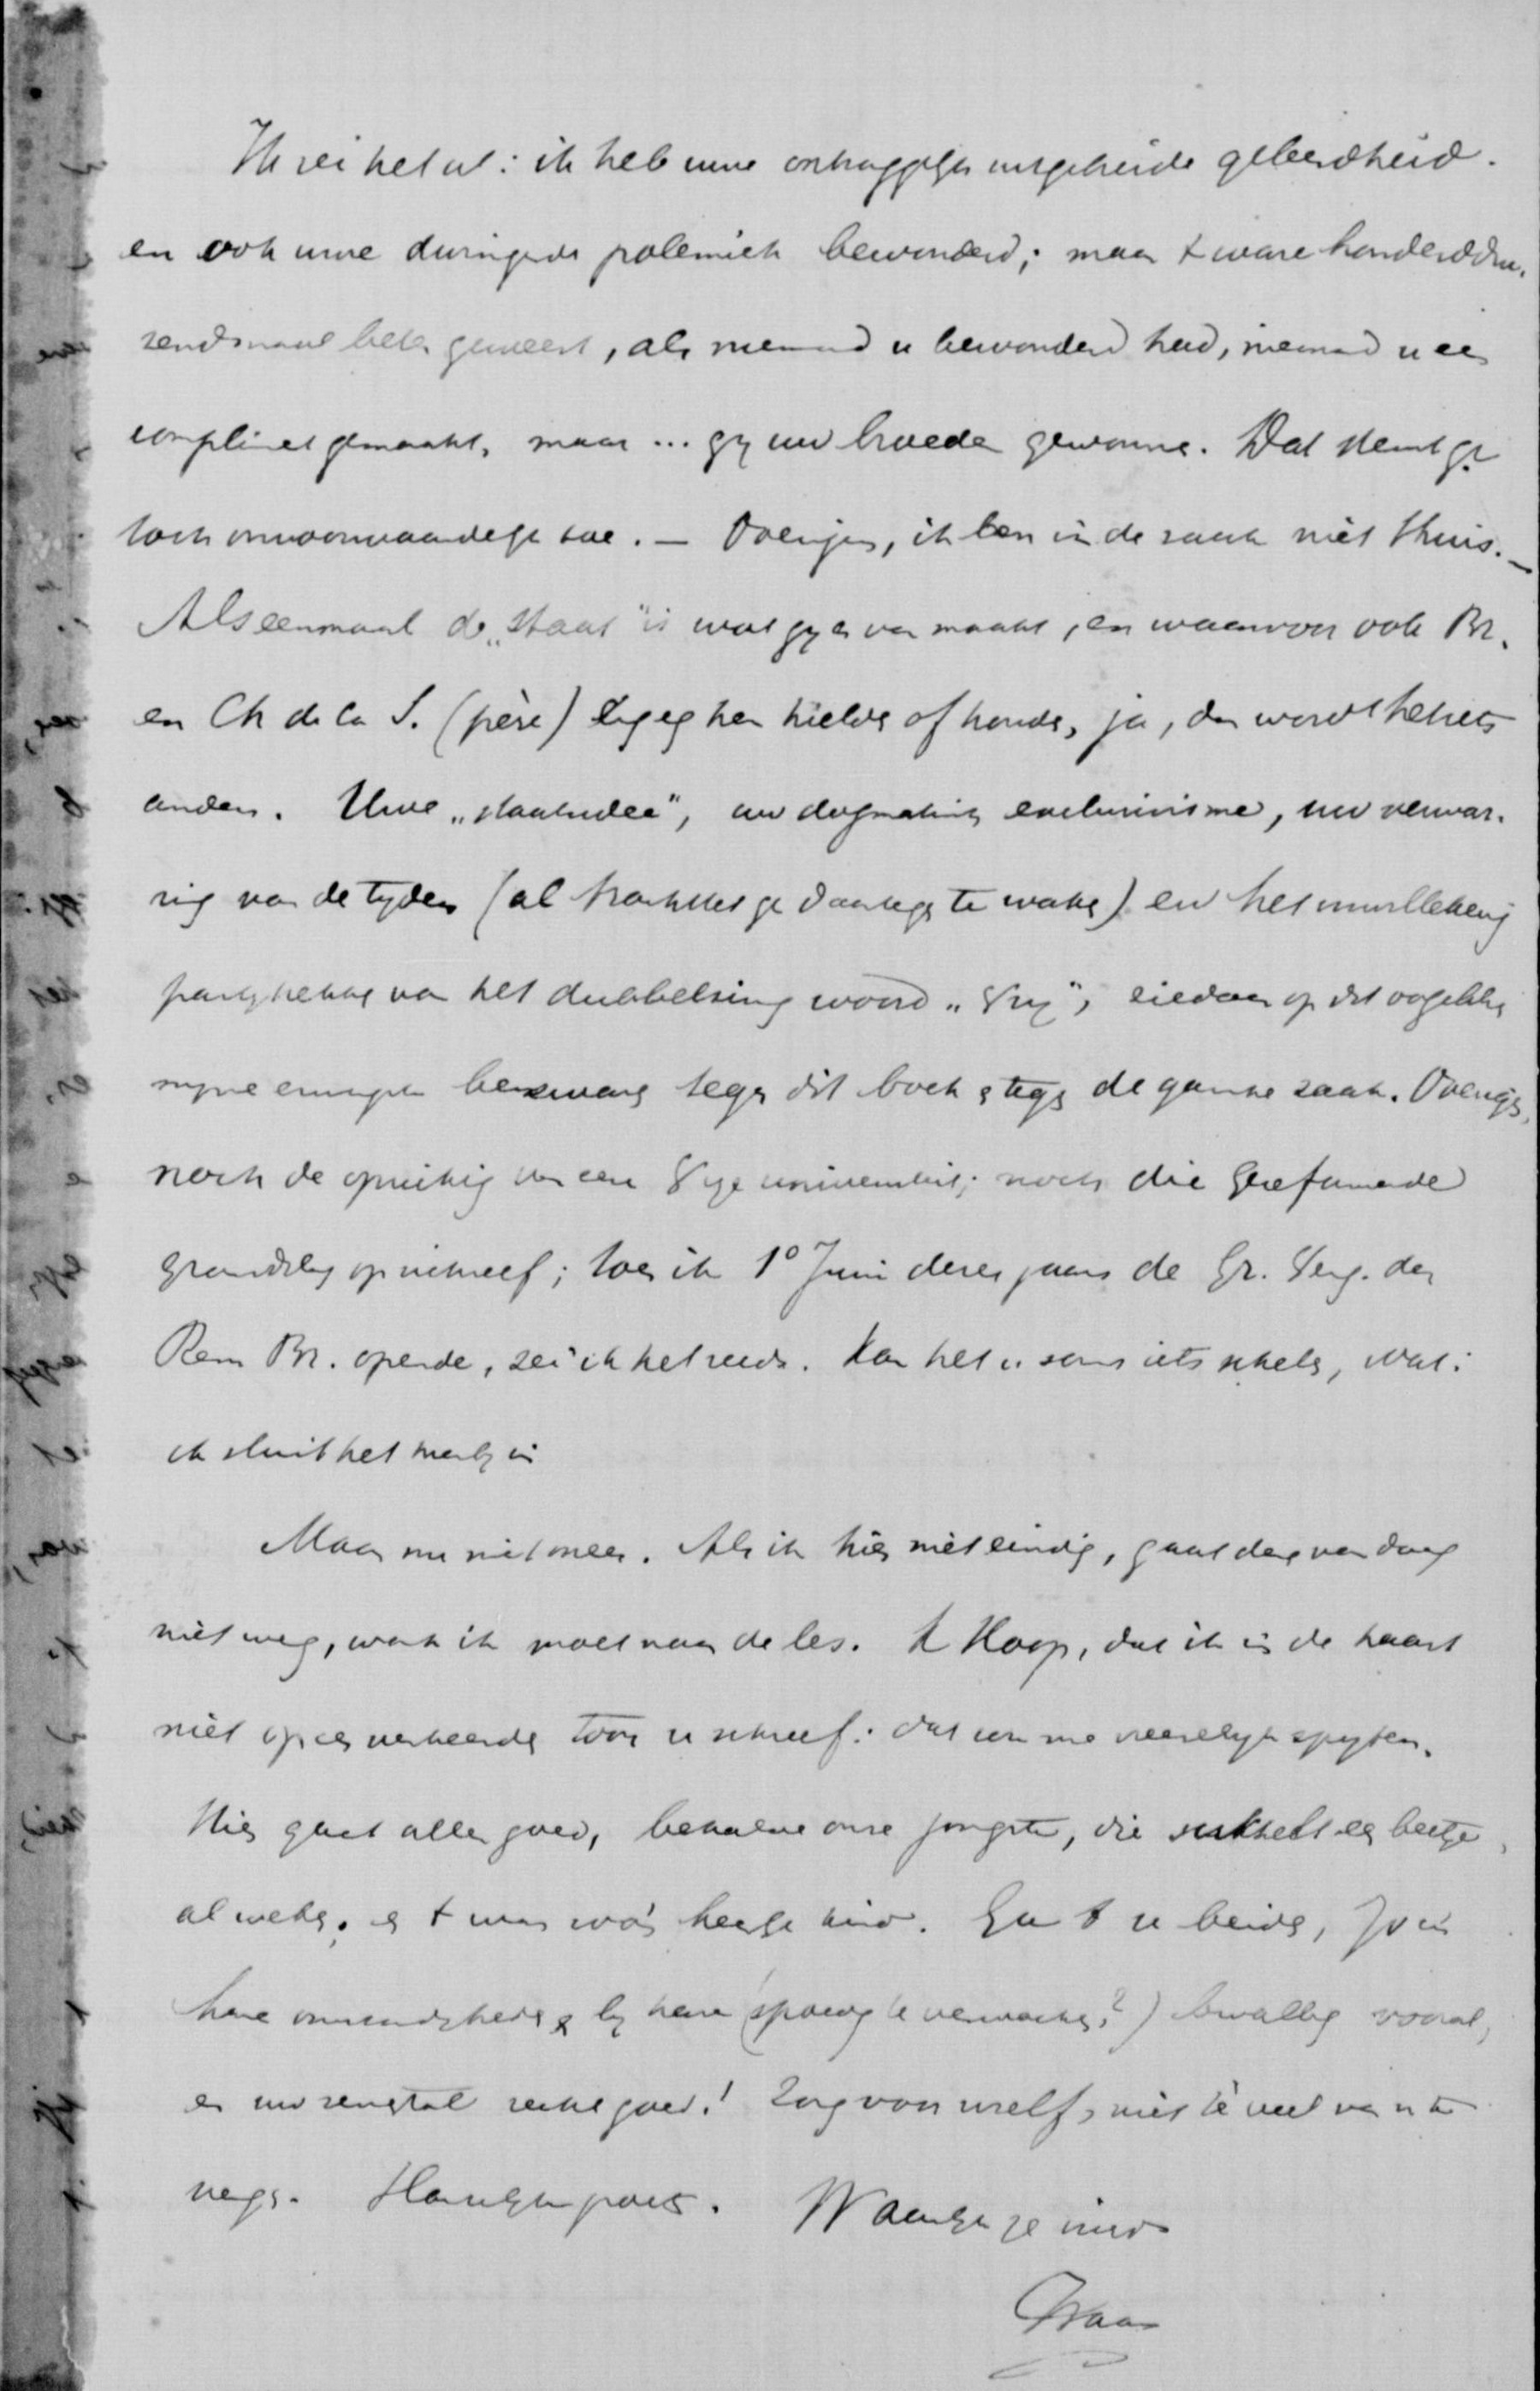 Ik zei het al: ik heb uwe ontzaggelijk uitgebreide geleerdheid.
en ook uwe dwingende polemiek bewonderd; maar 't ware honderddui-
zendmaal beter geweest, als niemand u bewonderd had, niemand u een
compliment gemaakt, maar ... gij uw broeder gewonnen. Dat stemt ge
toch onvoorwaardelijk toe. — Overigens, ik ben in de zaak niet thuis. —
Als eenmaal de „Staat" is wat gij er van maakt, en waarvoor ook Br.
en Ch de la S. (père) hielden of houden, ja, dan wordt het iets
anders. Uwe „staatsidee", uw dogmatisch exclusivisme, uw verwar-
ring van de tijden (al trachttet ge daartegen te waken) en het
van het dubbelzinnig woord „Vrij", ziedaar op dit oogenblik
mijne eenige bezwaren tegen dit boek en tegen de gansche zaak. Overigens,
noch de oprichting van een Vrije universiteit; noch die Gereformeerde
grondslag op zichzelf; toen ik 1º Juni dezes jaars de Gr. Verg. der
Rem Br. opende, zei ik het reeds. Kan het u soms iets schelen, wat:
ik sluit het hierbij in
Maar nu niet meer. Als ik hier niet eindig, gaat deze vandaag
niet weg, want ik moet naar de les. 'k Hoop, dat ik in de haast
niet op een verkeerden toon u schreef: dat zou me vreeselijk spijten.
Hier gaat alles goed, behalve onze jongste, die sukkelt een beetje
al weken, en 't was zoo'n heerlijk kind. Ga 't u beiden, Jo in
hare omstandigheden bij hare (spoedig te verwachten?) bevalling vooral,
en uw zevental recht goed! Zorg voor uzelf, niet té veel van u te
vergen. Hartelijk gegroet. Waarlijk je vriend